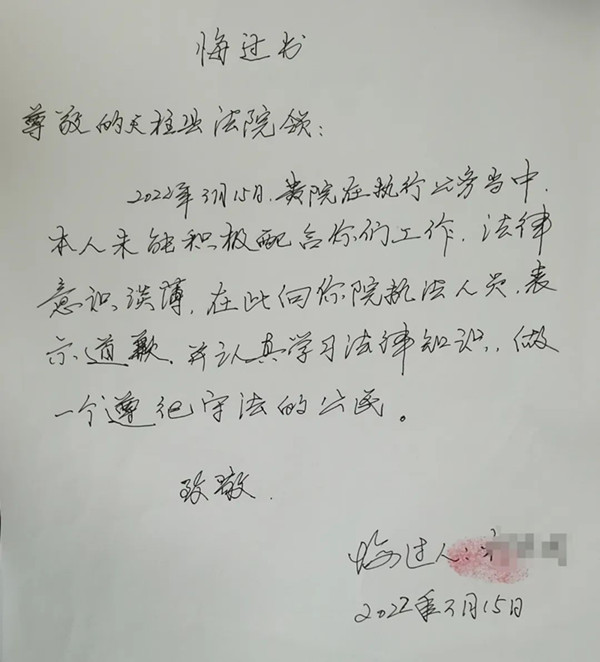 悔过书
尊敬的天柱县法院领:
2022年3月15日.贵院在执行公务当中,
本人未能积极配合你们工作,法律
意识淡薄,在此向你院执法人员,表
示道歉,并认真学习法律知识,,做
一个遵纪守法的公民。
致敬.
悔过人:
2022年3月15日